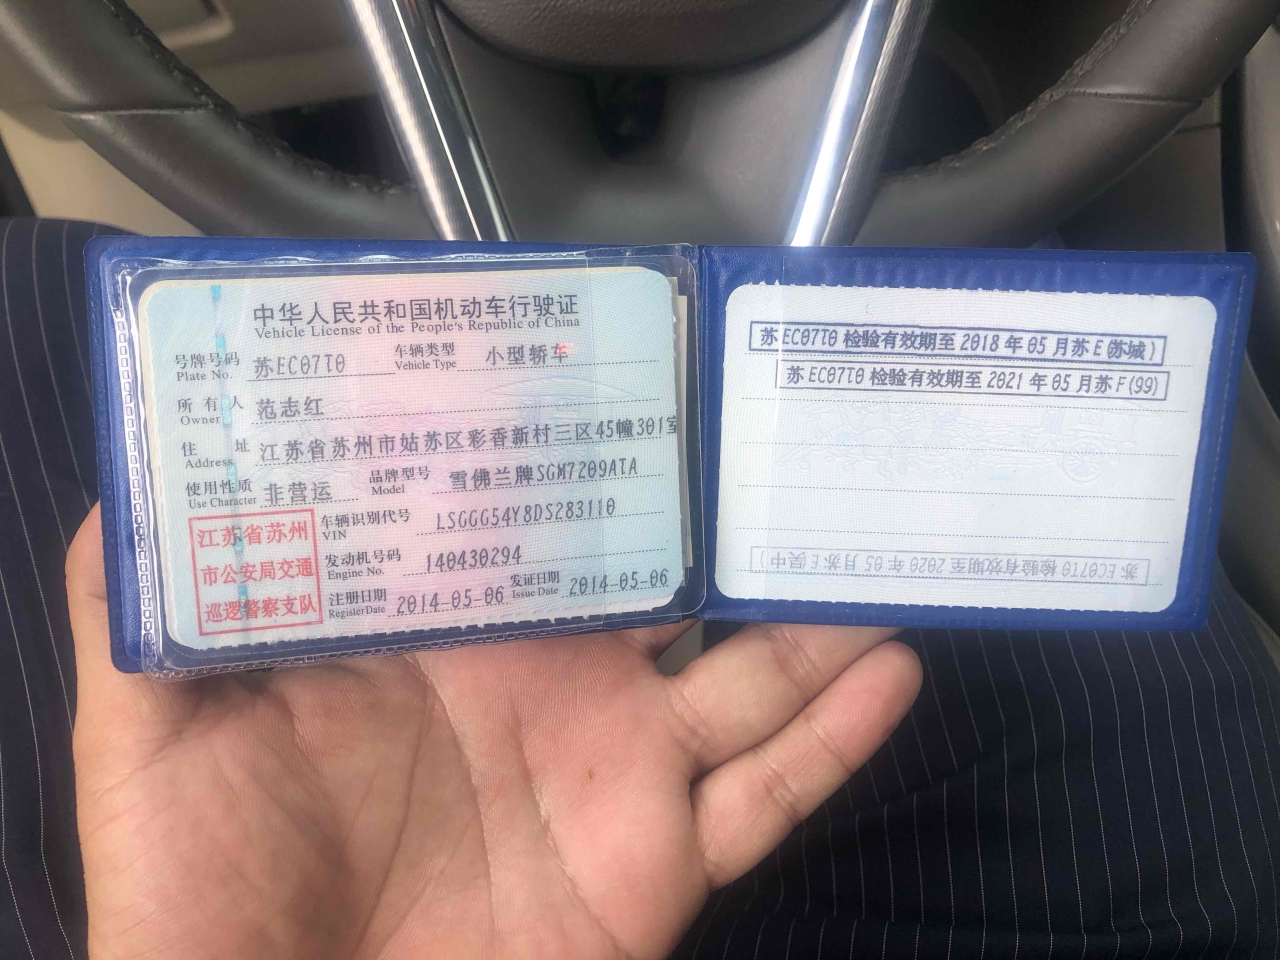 中华人民共和国机动车行驶证
Vehicle License of the People's Republic of China
号牌号码 苏EC07T0 车辆类型 小型轿车
Plate No. Vehicle Type
所有人 范志红
Owner
住址 江苏省苏州市姑苏区彩香新村三区45幢301室
Address
使用性质 非营运 品牌型号 雪佛兰牌SGM7209ATA
Use Character Model
车辆识别代号 LSGGG54Y8DS283110
VIN
发动机号码 140430294
Engine No.
注册日期 2014-05-06 发证日期 2014-05-06
Register Date Issue Date
江苏省苏州
市公安局交通
巡逻警察支队
苏EC07T0 检验有效期至 2018 年 05 月苏 E (苏城)
苏 EC07T0 检验有效期至 2021 年 05 月苏 F (99)
苏 EC07T0 检验有效期至 2020 年 05 月苏 E (吴中)